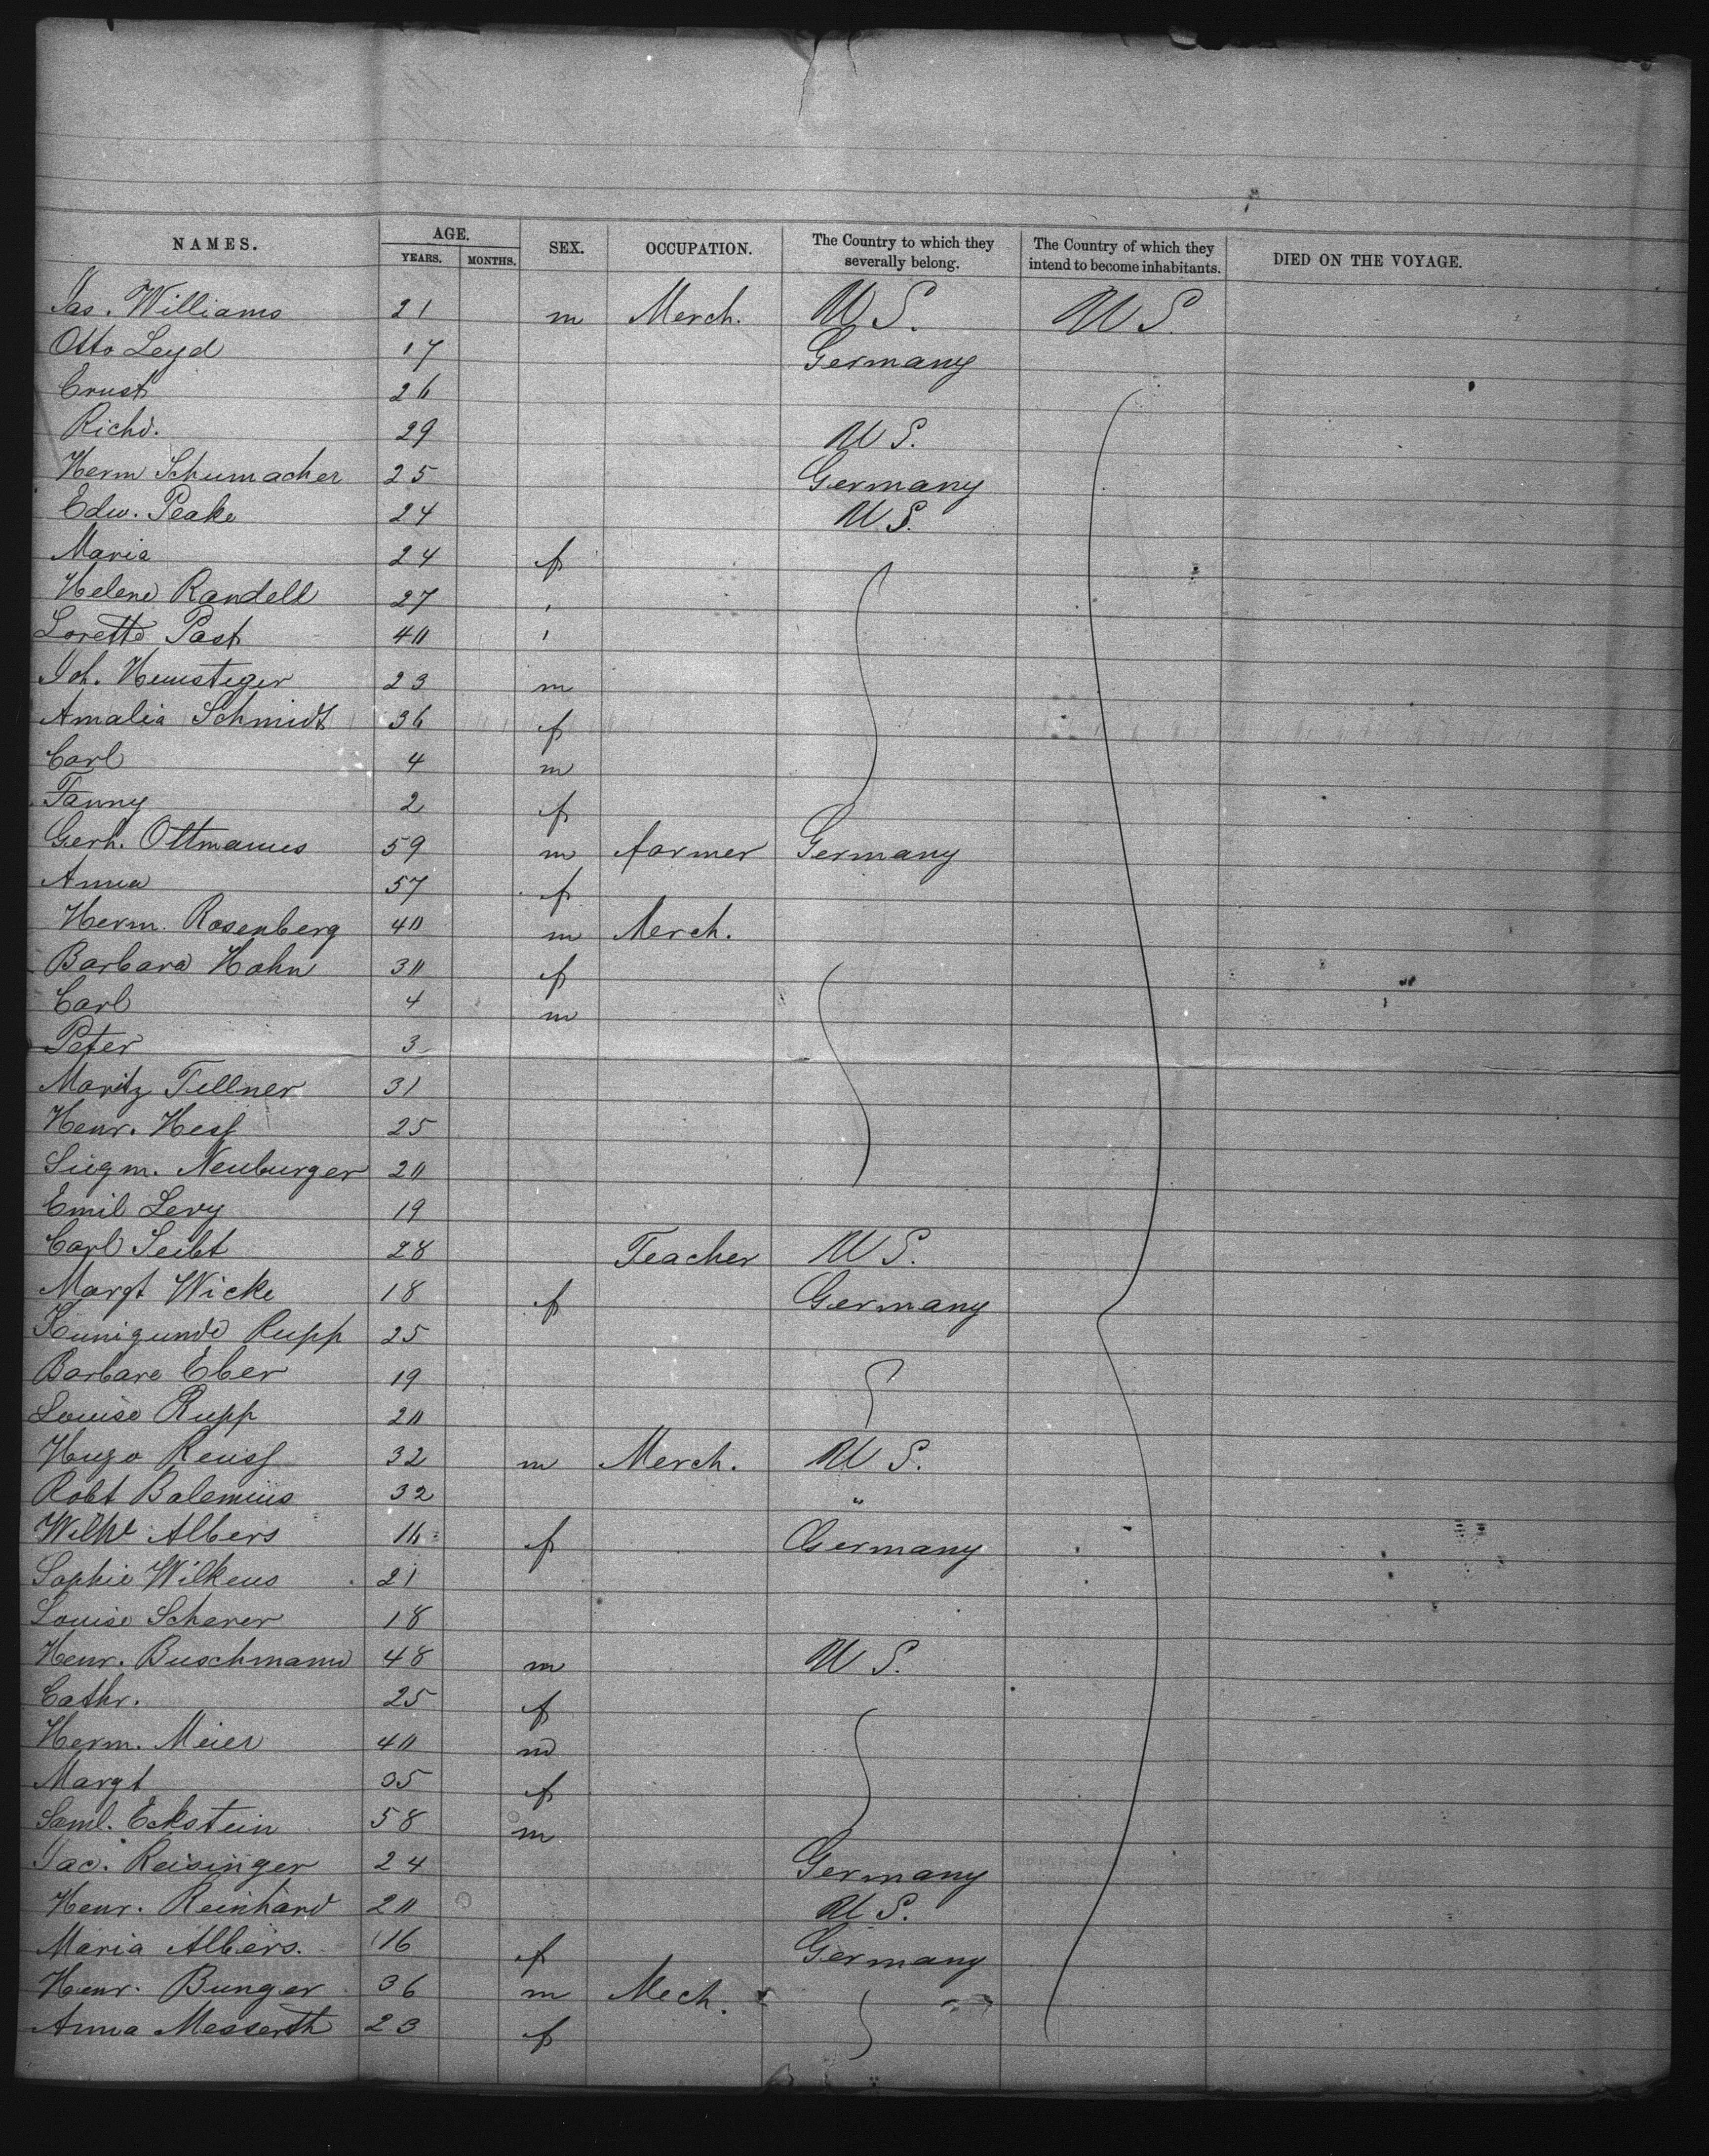 NAMES. AGE. YEARS. MONTHS. SEX. OCCUPATION. The Country to which they severally belong. The Country of which they intend to become inhabitants. DIED ON THE VOYAGE.
Jas. Williams 21 m Merch. U S. U S.
Otto Leyd 17 Germany
Ernst 26
Richd. 29 U S.
Herm Schumacher 25 Germany
Edw. Peake 24 U S.
Maria 24 f
Helene Randell 27 '
Lorette Post 40 '
Joh. 23 m
Amalia Schmidt 36 f
Carl 4 m
Fanny 2 f
Gerh. Oltmanns 59 m farmer Germany
Anna 57 f
Herm. Rosenberg 40 m Merch.
Barbara Hahn 30 f
Carl 4 m
Peter 3
Moritz Tellner 31
Henr. Hess 25
Siegm. Neuburger 20
Emil Levy 19
Carl Seibt 28 Teacher U S.
Margt Wicke 18 f Germany
Kunigunde Rupp 25
Barbara Eber 19
Louise Rupp 20
Hugo Reuss 32 m Merch. U S.
Robt 32 "
Wilhe Albers f Germany
Sophie Wilkens 21
Louise Scherer 18
Henr. Buschmann 48 m U S.
Cathr. 25 f
Herm. Meier 40 m
Margt 35 f
Saml. Eckstein 58 m
Jac. Reisinger 24 Germany
Henr. Reinhard 20 U S.
Maria Albers. 16 f Germany
Henr. Bunger 36 m Mech.
Anna Messerth 23 f